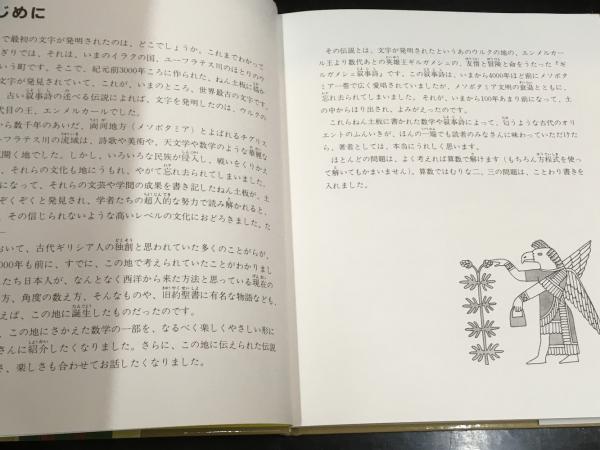 じめに
で最初の文字が発明されたのは、どこでしょうか。これまでわかって
ぎりでは、それは、いまのイラクの国、ユーフラテス川のほとりの
いう町です。そこで、紀元前3000年ころに作られた、ねん土板に描か
文字が発見されていて、これが、いまのところ、世界最古の文字です。
古い叙事詩の述べる伝説によれば、文字を発明したのは、ウルクの
代目の王、エンメルカールでした。
から数千年のあいだ、両河地方（メソポタミア）とよばれるチグリス
ーフラテス川の流域は、詩歌や美術や、天文学や数学のような華麗な
開く地でした。しかし、いろいろな民族が侵入し、戦いをくりかえ
、それらの文化も地にうもれ、やがて忘れ去られてしまいました。
になって、それらの文芸や学問の成果を書き記したねん土板が、土
ぞくぞくと発見され、学者たちの超人的な努力で読み解かれると、
、その信じられないような高いレベルの文化におどろきました。た
おいて、古代ギリシア人の独創と思われていた多くのことがらが、
000年も前に、すでに、この地で考えられていたことがわかりまし
したち日本人が、なんとなく西洋から来た方法と思っている現在の
方、角度の数え方、そんなものや、旧約聖書に有名な物語なども、
えば、この地に誕生したものだったのです。
、この地にさかえた数学の一部を、なるべく楽しくやさしい形に
さんに紹介したくなりました。さらに、この地に伝えられた伝説
さ、楽しさも合わせてお話したくなりました。
その伝説とは、文字が発明されたというあのウルクの地の、エンメルカー
ル王より数代あとの英雄王ギルガメシュの、友情と冒険と命をうたった『ギ
ルガメシュ叙事詩』です。この叙事詩は、いまから4000年ほど前にメソポタ
ミア一帯で広く愛唱されていましたが、メソポタミア文明の衰退とともに、
忘れ去られてしまいました。それが、いまから100年あまり前になって、土
の中からほり出され、よみがえったのです。
これらねん土板に書かれた数学や叙事詩によって、匂うような古代のオリ
エントのふんいきが、ほんの一端でも読者のみなさんに味わっていただけた
ら、著者としては、本当にうれしく思います。
ほとんどの問題は、よく考えれば算数で解けます（もちろん方程式を使っ
て解いてもかまいません）。算数ではむりな二、三の問題は、ことわり書きを
入れました。